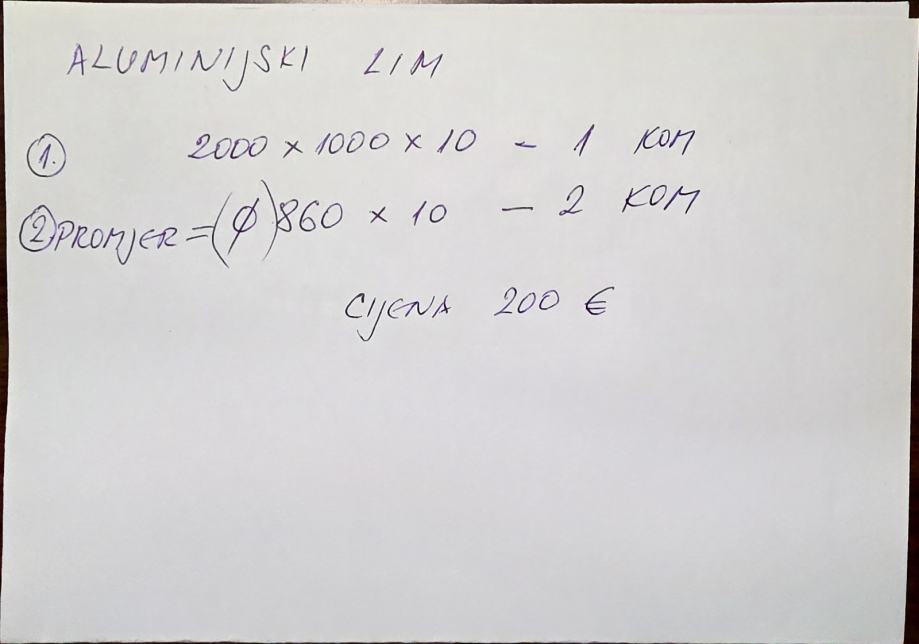 ALUMINIJSKI LIM
1. 2000 x 1000 x 10 - 1 KOM
2 PROMJER = (ϕ) 860 x 10 - 2 KOM
CIJENA 200 €